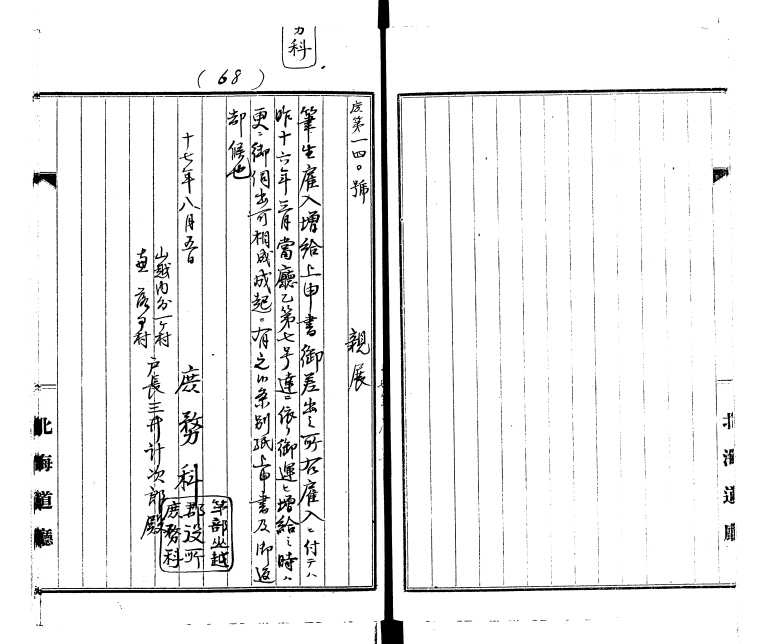 北海道廳
務科
(68)
庶第一四〇號
親展
筆生雇入増給上申書御差出之所右雇入ニ付テハ
昨十六年三月當廳乙第七号達ニ依リ御運ヒ増給之時ハ
更ニ御伺出可相成成起〇有之候条別紙上申書及御返
却候也
十七年八月五日
庶務科
山越内外一ヶ村
戸長三井計次郎殿
茅部山越
郡役所
庶務科
北海道廳